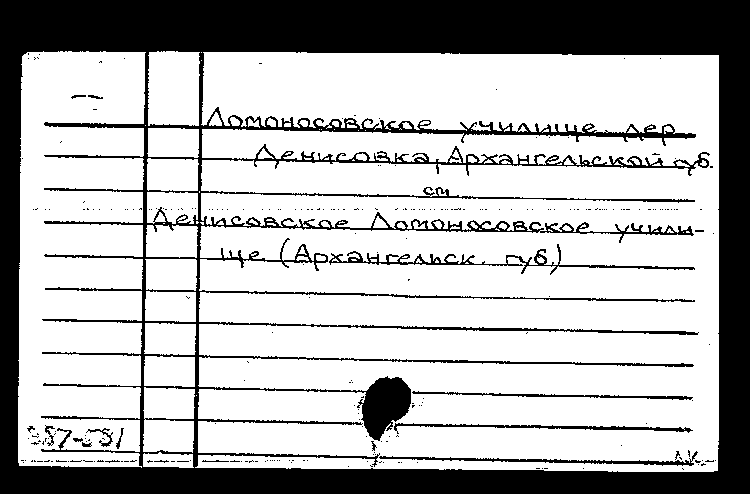 Ломоносовское училище дер.
Денисовка, Архангельской губ.
см
Денисовское Ломоносовское учили-
ще (Архангельск. губ.)
387-581